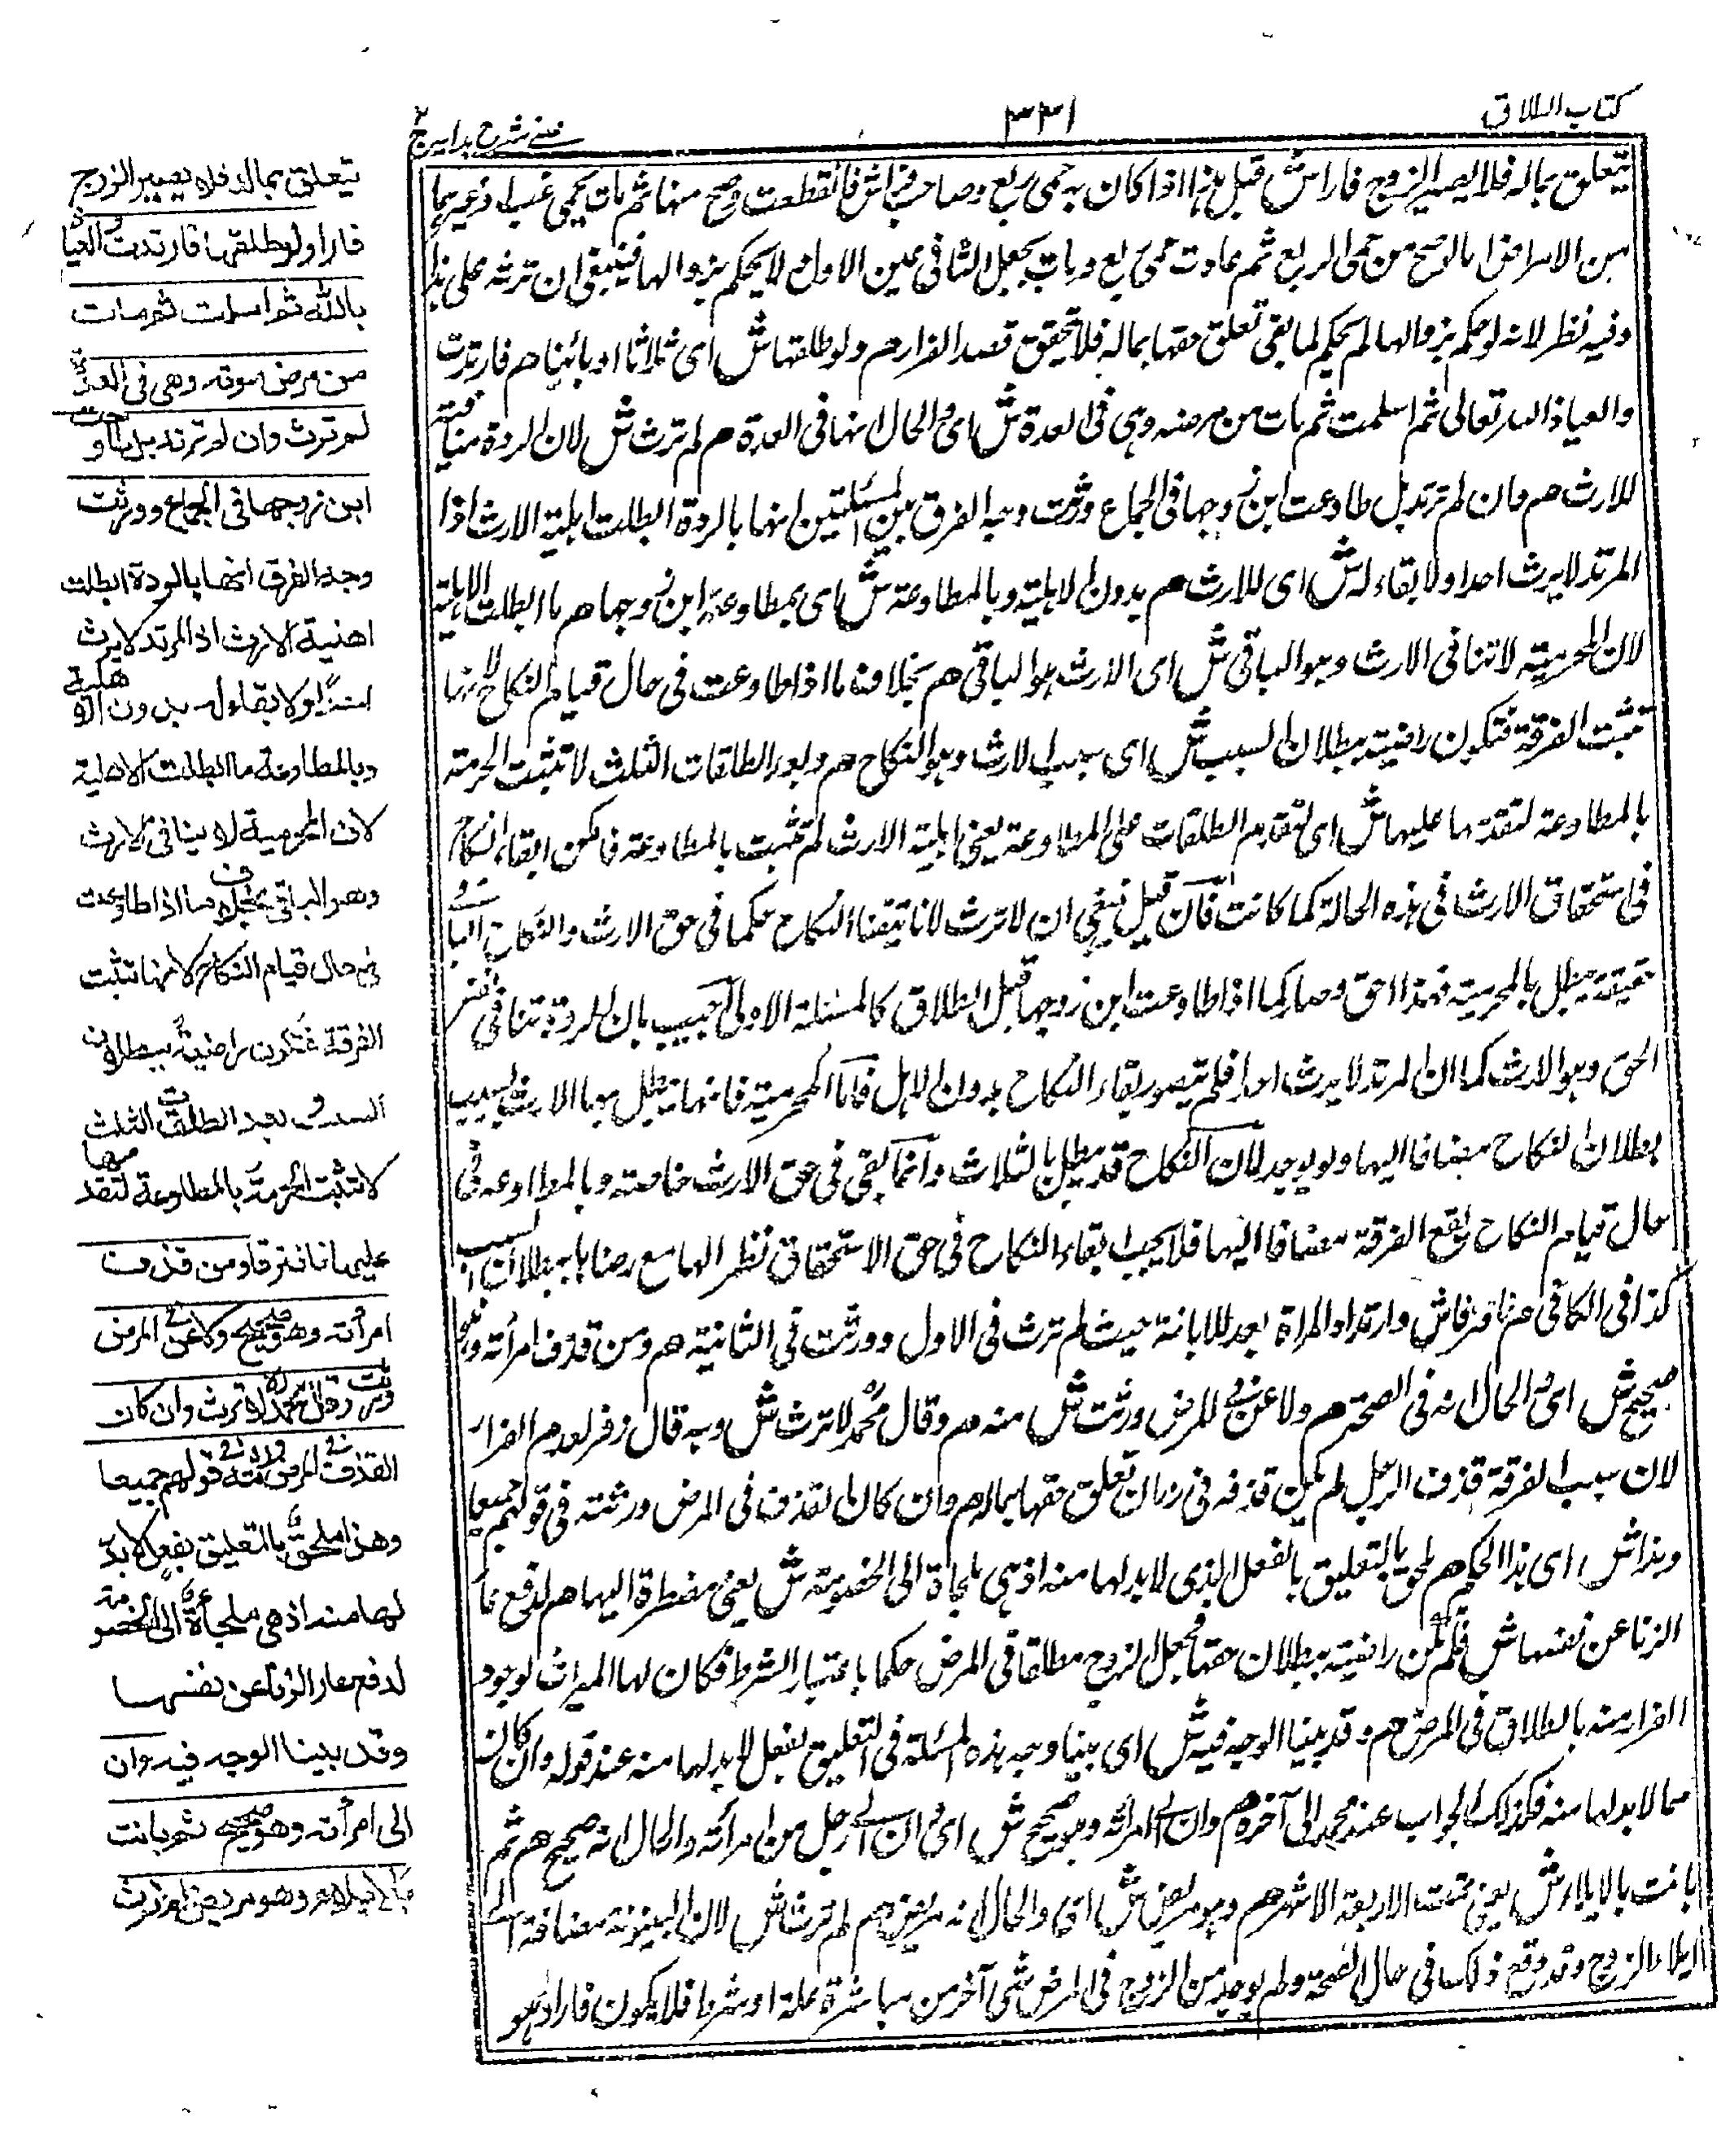 كتاب الطلاق
٣٣١
عینی شرح ہدایہ ج ٢
يتعلق بماله فلا يصير الزوج فارا ش قيل هذا اذا كان به حمى ربع وصاحب فراش فانقطعت وصح منها ثم مات بحمى غب او غيرها
من الامراض اما لو صح من حمى الربع ثم عادت حمى ربع ومات يجعل الثانى عين الاول لا يحكم بزوالها فينبغى ان ترثه على هذا
وفيه نظر لانه لو حكم بزوالها لم يحكم لما بقى تعلق حقها بماله فلا تحقيق قصد الفرار هم ولو طلقها ش اى ثلاثا او بائنا هم فارتدت
والعياذ بالله تعالى ثم اسلمت ثم مات من مرضه وهى فى العدة ش اى والحال انها فى العدة هم لم ترث ش لان الردة منافية
للارث هم وان لم ترتد بل طاوعت ابن زوجها فى الجماع ورثت وجه الفرق بين المسئلتين انها بالردة ابطلت اهلية الارث اذا
المرتد لا يرث احدا ولا بقاء له ش اى للارث هم بدون الاهلية وبالمطاوعة ش اى بمطاوعة ابن زوجها هم ما ابطلت الاهلية
لان المحرمية لا تنافى الارث وهو الباقى ش اى الارث هو الباقى هم بخلاف ما اذا طاوعت فى حال قيام النكاح لانها
تثبت الفرقة فتكون راضية ببطلان السبب ش اى سبب الارث وهو النكاح هم وبعد الطلقات الثلث لا تثبت الحرمة
بالمطاوعة لتقدمها عليها ش اى لتقدم الطلقات على المطاوعة يعنى اهلية الارث لم تثبت بالمطاوعة فامكن ابقاء النكاح
فى استحقاق الارث فى هذه الحالة كما كانت فان قيل ينبغى ان لا ترث لانا تيقنا النكاح حكما فى حق الارث والنكاح
حقيقة يبطل بالمحرمية فهذا احق وصار كما اذا طاوعت ابن زوجها قبل الطلاق كالمسئلة الاولى اجيب بان الردة تنافى نفس
الحق وهو الارث كما ان المرتد لا يرث احدا فلم يتصور بقاء النكاح بدون الاهل فاما المحرمية فانها يبطل بها الارث بسبب
بطلان النكاح مضافا اليها ولم يوجد لان النكاح قد بطل بالثلاث وانما بقى فى حق الارث خاصة وبالمطاوعة فى
حال قيام النكاح تقع الفرقة مضافا اليها فلا يجب ابقاء النكاح فى حق الاستحقاق نظر الها مع رضاها ببطلان السبب
كذا فى الكافى هم فافترقا ش وارتداد المراة بعد الابانة حيث لم ترث فى الاول وورثت فى الثانية هم ومن قذف امرأته وهو
صحيح ش اى والحال انه فى الصحة هم ولاعن فى المرض ورثت ش منه هم وقال محمد لا ترث ش وبه قال زفر لعدم الفرار
لان سبب الفرقة قذف الرجل لم يكن قذفه فى زمان تعلق حقها بماله هم وان كان القذف فى المرض ورثته فى قولهم جميعا
وهذا ش اى هذا الحكم هم ملحق بالتعليق بالفعل الذى لا بد لها منه اذ هى ملجاة الى الخصومة ش يعنى مضطرة اليها هم لدفع عار
الزنا عن نفسها ش فلم تكن راضية ببطلان حقها فجعل الزوج مطلقا فى المرض حكما باعتبار الشرط فكان لها الميراث لوجود
الفرار منه بالطلاق فى المرض هم وقد بينا الوجه فيه ش اى بينا وجه هذه المسئلة فى التعليق بفعل لا بد لها منه عند قوله وان كان
مما لا بد لها منه فكذلك الجواب عند محمد الى آخره هم وان آلى امرأته وهو صحيح ش اى وان آلى رجل من امرأته والحال انه صحيح هم ثم
بانت بالايلاء ش يعنى تمت الاربعة الاشهر هم وهو مريض ش اى والحال انه مريض هم لم ترث ش لان البينونة مضافة الى
ايلاء الزوج وقد وقع ذلك فى حال الصحة ولم يوجد من الزوج فى المرض شئ آخر من مباشرة علة او شرط فلا يكون فارا وهو
يتعلق بماله فلا يصير الزوج
فارا ولو طلقها فارتدت والعياذ
بالله ثم اسلمت ثم مات
من مرض موته وهى فى العدة
لم ترث وان لم ترتد بل طاوعت
ابن زوجها فى الجماع وورثت
وجه الفرق انها بالردة ابطلت
اهلية الارث اذ المرتد لا يرث
احدا ولا بقاء له بدون الاهلية
وبالمطاوعة ما ابطلت الاهلية
لان المحرمية لا ينافى الارث
وهو الباقى بخلاف ما اذا طاوعت
فى حال قيام النكاح لانها تثبت
الفرقة فتكون راضية ببطلان
السبب وبعد الطلقات الثلث
لا تثبت الحرمة بالمطاوعة لتقدمها
عليها فافترقا ومن قذف
امرأته وهو صحيح ولاعن فى المرض
ورثت وقال محمد لا ترث وان كان
القذف فى المرض ورثته فى قولهم جميعا
وهذا ملحق بالتعليق بفعل لا بد
لها منه اذ هى ملجأة الى الخصومة
لدفع عار الزنا عن نفسها
وقد بينا الوجه فيه وان
الى امرأته وهو صحيح ثم بانت
بالايلاء وهو مريض لم ترث